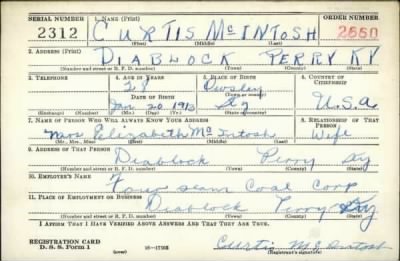 SERIAL NUMBER 1. NAME (Print) ORDER NUMBER
2312 CURTIS McINTOSH 2660
(First) (Middle) (Last)
2. ADDRESS (Print)
DIABLOCK PERRY KY
(Number and street or R. F. D. number) (Town) (County) (State)
3. TELEPHONE 4. AGE IN YEARS 5. PLACE OF BIRTH 6. COUNTRY OF CITIZENSHIP
27 Owsley
DATE OF BIRTH (Town or county)
Jan 20 1913 Ky U.S.A.
(Exchange) (Number) (Mo.) (Day) (Yr.) (State or country)
7. NAME OF PERSON WHO WILL ALWAYS KNOW YOUR ADDRESS 8. RELATIONSHIP OF THAT PERSON
Mrs Elizabeth McIntosh Wife
(Mr., Mrs., Miss) (First) (Middle) (Last)
9. ADDRESS OF THAT PERSON
Diablock Perry Ky
(Number and street or R. F. D. number) (Town) (County) (State)
10. EMPLOYER'S NAME
Four seam Coal Corp
11. PLACE OF EMPLOYMENT OR BUSINESS
Diablock Perry Ky
(Number and street or R. F. D. number) (Town) (County) (State)
I AFFIRM THAT I HAVE VERIFIED ABOVE ANSWERS AND THAT THEY ARE TRUE.
REGISTRATION CARD
D. S. S. Form 1 (over) 16—17105 Curtis McIntosh
(Registrant's signature)